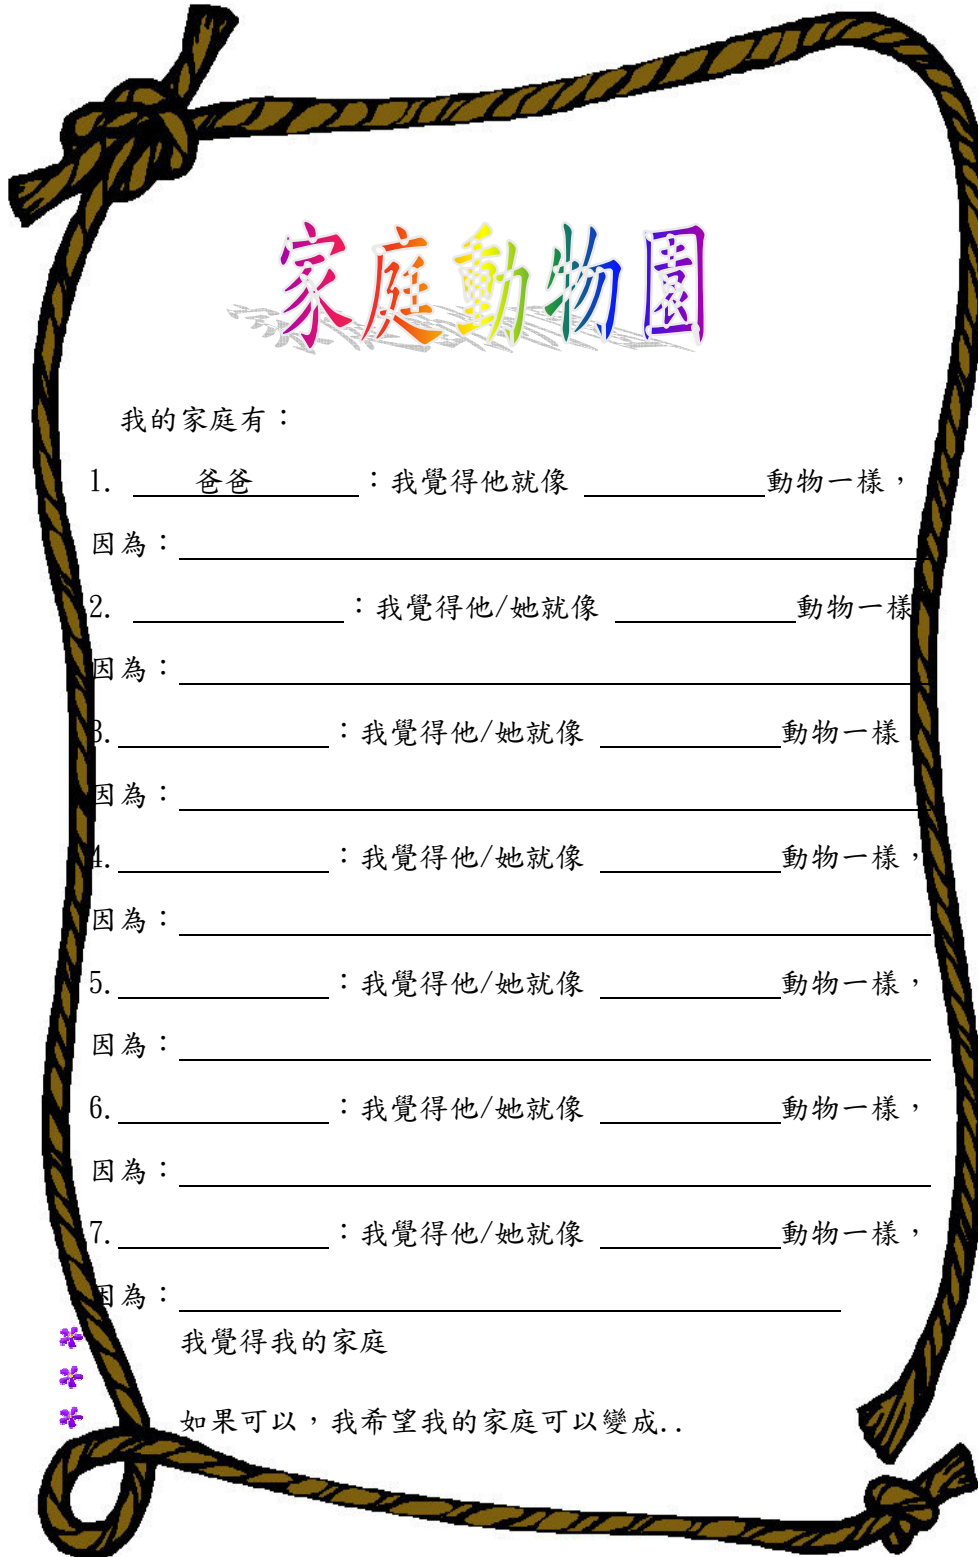 家庭動物園
我的家庭有：
1. 爸爸：我覺得他就像 動物一樣，
因為：
2. ：我覺得他/她就像 動物一樣
因為：
3. ：我覺得他/她就像 動物一樣
因為：
4. ：我覺得他/她就像 動物一樣，
因為：
5. ：我覺得他/她就像 動物一樣，
因為：
6. ：我覺得他/她就像 動物一樣，
因為：
7. ：我覺得他/她就像 動物一樣，
因為：
我覺得我的家庭
如果可以，我希望我的家庭可以變成..